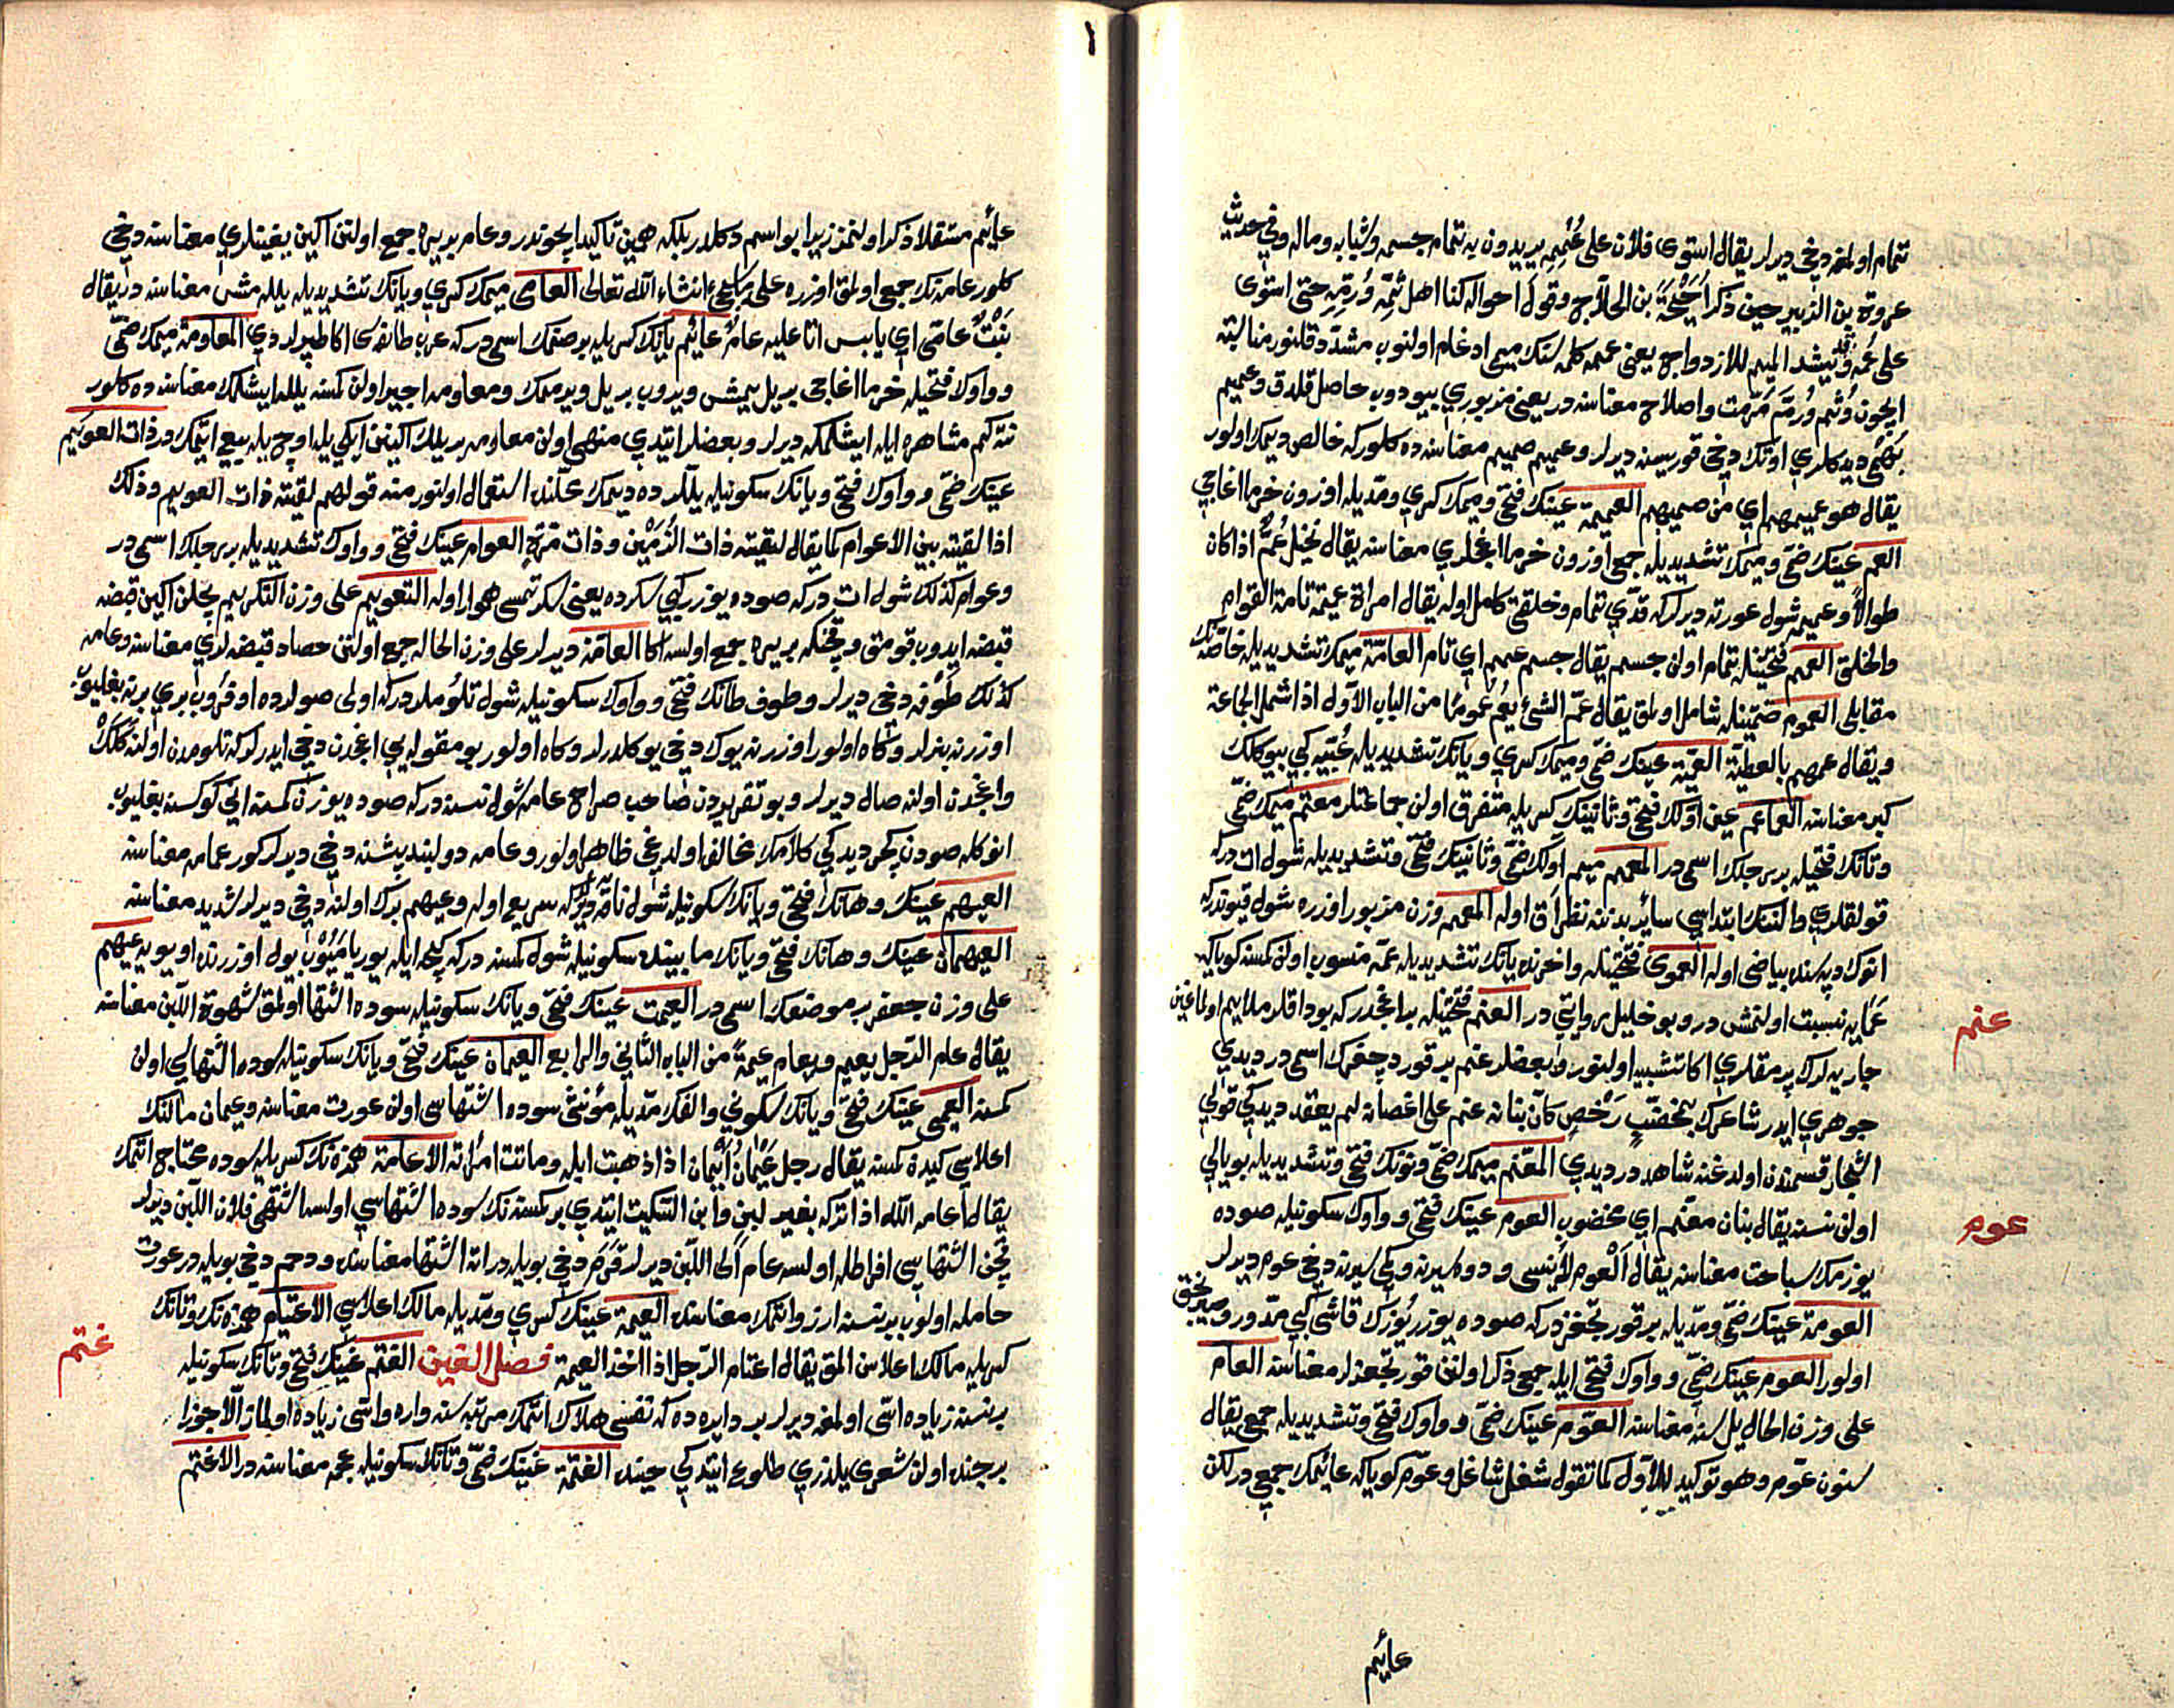 تمام اولمغه دخی دیرلر یقال استوی فلان علی عُمُمِه یریدون به تمام جسمه وشبابه وماله وفی حدیث
عروة بن الزبیر حین ذکر اُحَیْحَةَ بن الجلاح وقول احواله کنا اهل ثُمِّه ورُمِّه حتی استوی
علی عُمِّه وقد تشد المیم للازدواج یعنی عممه کلمه سنک میمی ادغام اولنوب مشدّد قلنور مناسبة
ایچون وثم ورُمّ مرمت واصلاح معناسنه در یعنی مزبوری بیودوب حاصل قلدق وعمیم
دیدکلری اوتک دخی قوریسنه دیرلر وعمیم صمیم معناسنه ده کلور که خالص دیمک اولور
یقال هو عمیمهم ای من صمیمهم العمیمة عینک فتحی ومیمک کسری ومدّیله اوزون خرما اغاجی
العم عینک ضمّی ومیمک تشدیدیله جمع اوزون خرما اغاجلری معناسنه یقال نخیل عُمٌّ اذا کان
طوالاً وعمیمه شول عورته دیرلر که قدّی تمام وخلقتی کامل اوله یقال امراة عمیمة تامة القوام
والخلق العمم فتحتینله تمام اولن جسم یقال جسم عمم ای تام العامّة میمک تشدیدیله خاصّه نک
مقابلی العموم ضمّتینله شامل اولمق یقال عمّ الشئ یعُم عُمومًا من الباب الاول اذا شمل الجماعة
ویقال عمهم بالعطیّة العمیّة عینک ضمّی ومیمک کسری ویانک تشدیدیله عُبّیّه کبی بیوکلک
کبر معناسنه العماعم عین اوّلک فتحی وثانینک کسریله متفرق اولن جماعتلر معتم میمک ضمّی
وتانک فتحیله بر رجلک اسمی در المعمم میم اوّلک ضمّی وثانینک فتحی وتشدیدیله شول ات در که
قولقلری والننک ابتداسی سائر بدنندن اق اوله المعمه وزن مزبور اوزره شول قیوندر که
انوک دپه سنده بیاضی اوله العموی فتحتینله واخرنده یانک تشدیدیله عمّه منسوب اولن کمسنه کویا که
عَمَّایه نسبت اولنمش در وبو خلیل روایتی در العنم فتحتینله بر اغجدر که بوداقلری ملایم اولماغین
عنم
جاریه لرک پرمقلری اکا تشبیه اولنور وبعضلر عنم بر قورد چغزک اسمی در دیدی
جوهری ایدر شاعرک بمخضّبٍ رَخْصٍ کانّ بنانه عنم علی اغصانه لم یعقد دیدکی قولی
اشجار قسمندن اولدغنه شاهد در دیدی المعنّم میمک ضمّی ونونک فتحی وتشدیدیله بویالی
اولن نسنه یقال بنان معنّم ای مخضوب العوم عینک فتحی وواوک سکونیله صوده
عوم
یوزمک سباحت معناسنه یقال العوم لا ینسی ودوه سیرنه وکمی سیرنه دخی عوم دیرلر
العومة عینک ضمّی ومدّیله بر قورتجغزدر که صوده یوزر یُوزک قاشی کبی مدوّر
اولور العوم عینک ضمّی وواوک فتحی ایله جمعی ذکر اولنن قورتجغزلر معناسنه العام
علی وزن الحال یل سنه معناسنه العوّم عینک ضمّی وواوک فتحی وتشدیدیله جمع یقال
سنون عوّم وهو توکید للاول کما تقول شغل شاغل وعوّم کویا که عائمک جمعی در لکن
عایٔم
عایٔم مستقلا ذکر اولنمز زیرا بو اسم دکلدر بلکه همین تاکید ایچوندر وعام بر یره جمع اولنن اکین بغیتلری معناسنه دخی
کلور عامه نک جمعی اولمق اوزره علی ما یجئ انشاء الله تعالی العامی میمک کسری ویانک تشدیدیله یللمش معناسنه در یقال
نَبْتٌ عامّی ای یابس اتا علیه عامٌ عائم یانک کسریله بر صنمک اسمی در که عرب طائفه سی اکا طپرلردی المعاومة میمک ضمّی
وواوک فتحیله خرما اغاجی بر یل یمیش ویروب بر یل ویرممک ومعاومه اجیر اولن کمسنه یللق ایشلمک معناسنه ده کلور
نته کم مشاهره ایله ایشلمکه دیرلر وبعضلر ایتدی منهی اولن معاومه بر یللک اکینن ایکی یله اوچ یله بیع ایتمک در ذات العویم
عینک ضمّی وواوک فتحی ویانک سکونیله یللرده دیمک محلنده استعمال اولنور منه قولهم لقیته ذات العویم وذلک
اذا لقیته بین الاعوام کما یقال لقیته ذات الزُمَیْن وذات مرّة العوام عینک فتحی وواوک تشدیدیله بر رجلک اسمی در
وعوام کذلک شول ات در که صوده یوزر کبی سکرده یعنی سکرتمسی هموار اوله التعویم علی وزن التکریم بچلن اکین قبضه
قبضه ایدوب قومق وقچنکه بر یره جمع اولسه اکا العامه دیرلر علی وزن الحاله جمع اولنن حصاد قبضه لری معناسنه وعامه
کذلک طوف دخی دیرلر وطوف طانک فتحی وواوک سکونیله شول تلوملردر که اولی صولرده اوفروب بری برنه بغلیوب
اوزرنه بنرلر وکاه اولور اوزرنه یوک دخی یوکلدرلر وکاه اولور بو مقوله یی اغجدن دخی ایدرلر که تلومدن اولنه کلک
واغجدن اولنه صال دیرلر وبو تقریردن صاحب صراح عامه شول نسنه در که صوده یوزن کمسنه انی کوکسنه بغلیوب
انوکله صودن کچر دیدکی کلامک مخالف اولدغی ظاهر اولور وعامه دولبند پیشنه دخی دیرلر کور عمامه معناسنه
العیهم عینک وهانک فتحی ویانک سکونیله شول ناقه یه دیرلر که سریع اوله وعیهم برک اولنه دخی دیرلر شدید معناسنه
العیهمان عینک وهانک فتحی ویانک مابینده سکونیله شول کمسنه در که کیجه ایله یوریامیوب یول اوزرنده اویویه عیهم
علی وزن جعفر بر موضعک اسمی در العیمت عینک فتحی ویانک سکونیله سوده اشتها اولمق شهوة اللبن معناسنه
یقال عام الرجل یعیم ویعام عیمةً من الباب الثانی والرابع العیمان عینک فتحی ویانک سکونیله سوده اشتهالی اولن
کمسنه العیمی عینک فتحی ویانک سکونی والفک مدّیله مؤنثی سوده اشتهاسی اولن عورت معناسنه وعیمان مالنک
اعلاسی کیدن کمسنه یقال رجل عَیْمانُ أیْمان اذا ذهبت ابله وماتت امرأته الاعامة همزه نک کسریله سوده محتاج اتمک
یقال اعامه الله اذا ترکه بغیر لبن وابن السکیت ایتدی بر کمسنه نک سوده اشتهاسی اولسه اشتهی فلان اللبن دیرلر
قچن اشتهاسی افراطله اولسه عام الی اللبن دیرلر قَرِمَ دخی بویله در اته اشتها معناسنده ودحم دخی بویله در عورت
حامله اولوب بر نسنه ارزو اتمک معناسنده العیمة عینک کسری ومدّیله مالک اعلاسی الاعتیام همزه نک وتانک
کسریله مالک اعلاسن المق یقال اعتام الرجل اذا اخذ العیمة فصل الغین الغتم غینک فتحی وتانک سکونیله
غتم
بر نسنه زیاده اسّی اولمغه دیرلر بر دایره ده که نفسی هلاک اتمک مرتبه سنه واره واسّی زیاده اولماز الّا جوزا
برجنده اولن شعری یلدزی طلوع ایتدکی حینده الغتمة غینک ضمّی وتانک سکونیله عجمه معناسنه در الاغتم